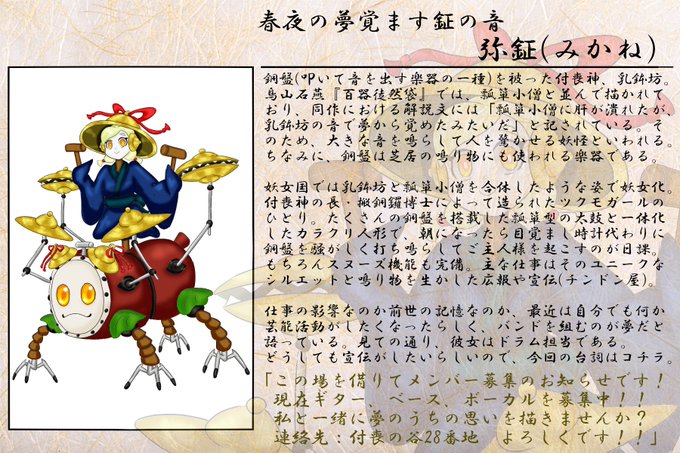 春夜の夢覚ます鉦の音
弥鉦(みかね)
銅盤(叩いて音を出す楽器の一種)を被った付喪神、乳鉢坊。
鳥山石燕『百器徒然袋』では、瓢箪小僧と並んで描かれて
おり、同作における解説文には「瓢箪小僧に肝が潰れたが、
乳鉢坊の音で夢から覚めたみたいだ」と記されている。そ
のため、大きな音を鳴らして人を驚かせる妖怪といわれる。
ちなみに、銅盤は芝居の鳴り物にも使われる楽器である。
妖女国では乳鉢坊と瓢箪小僧を合体したような姿で妖女化。
付喪神の長・搬銅羅博士によって造られたツクモガールの
ひとり。たくさんの銅盤を搭載した瓢箪型の太鼓と一体化
したカラクリ人形で、朝になったら目覚まし時計代わりに
銅盤を騒がしく打ち鳴らしてご主人様を起こすのが日課。
もちろんスヌーズ機能も完備。主な仕事はそのユニークな
シルエットと鳴り物を生かした広報や宣伝(チンドン屋)。
仕事の影響なのか前世の記憶なのか、最近は自分でも何か
芸能活動がしたくなったらしく、バンドを組むのが夢だと
語っている。見ての通り、彼女はドラム担当である。
どうしても宣伝がしたいらしいので、今回の台詞はコチラ。
「この場を借りてメンバー募集のお知らせです!
現在ギター、ベース、ボーカルを募集中!!
私と一緒に夢のうちの思いを描きませんか?
連絡先:付喪の谷28番地 よろしくです!!」